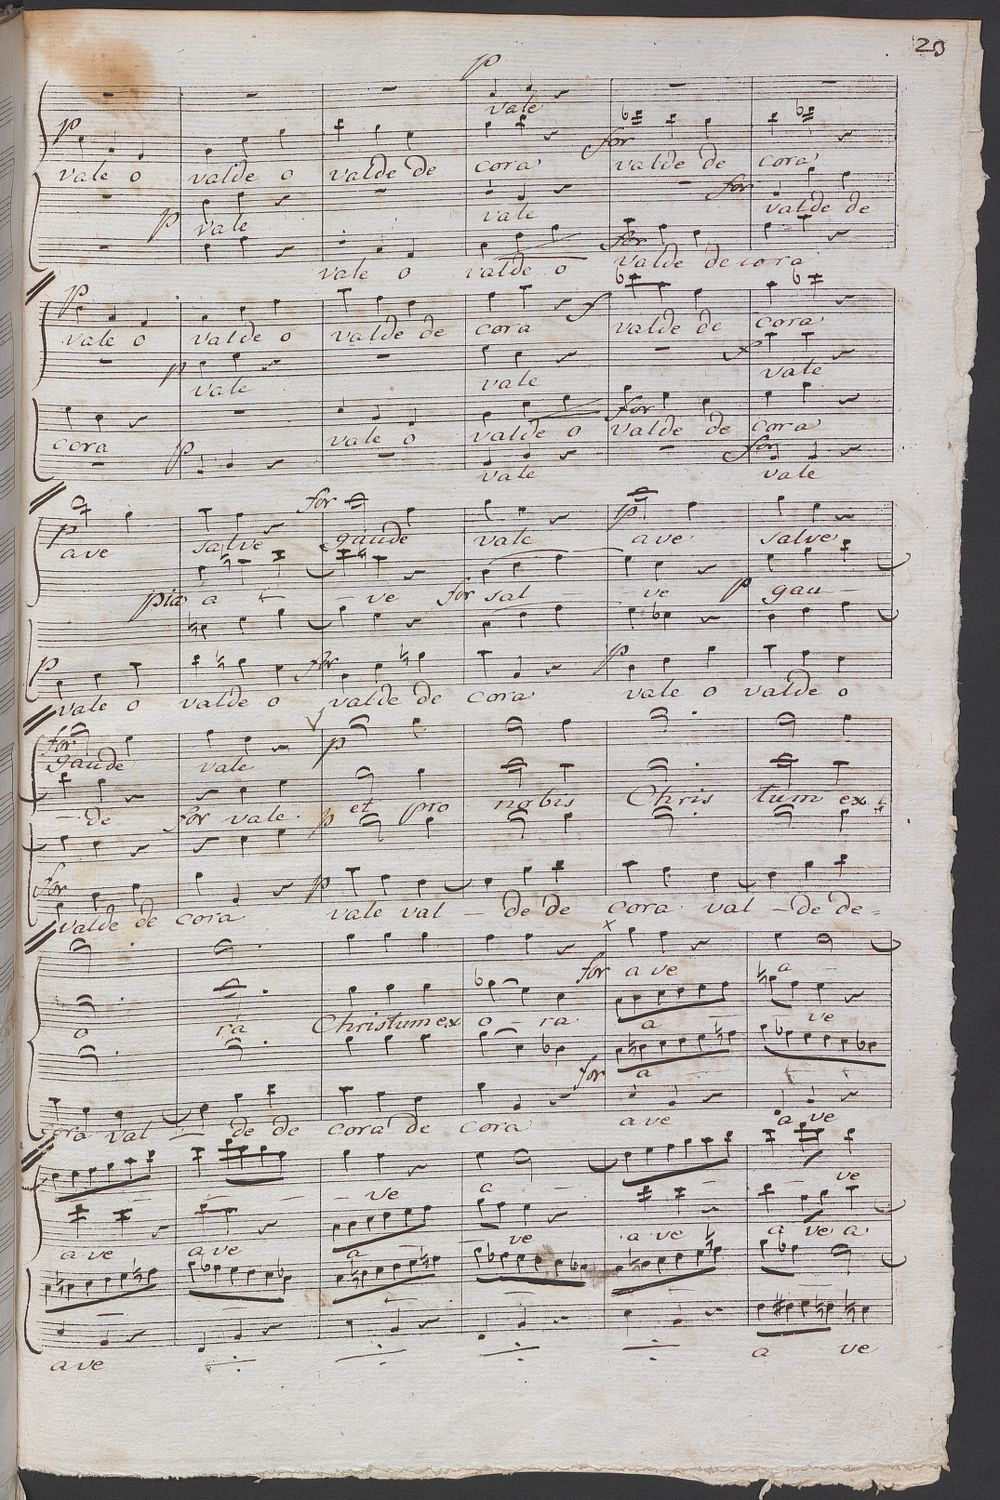 23
p
vale
p for
vale o valde o valde de cora valde de cora
for
p vale vale valde de
for
vale o valde o valde de cora
p f
vale o valde o valde de cora valde de cora
p vale vale f vale
for
cora vale o valde o valde de cora
p vale for vale
for
p ave salve gaude vale p ave salve
pia a - - ve for sal - - ve p gau -
p for p
vale o valde o valde de cora vale o valde o
for p
gaude vale
- de for vale. p et pro nobis Chris tum ex
for p
valde de cora vale val - de de cora val - de de
for ave a
o ra Christum ex o - ra a - ve
for a
cora val - de de cora de cora ave a ve
- - - ve a - - ve
ave ave a - ve ave a ve a
ave a ve